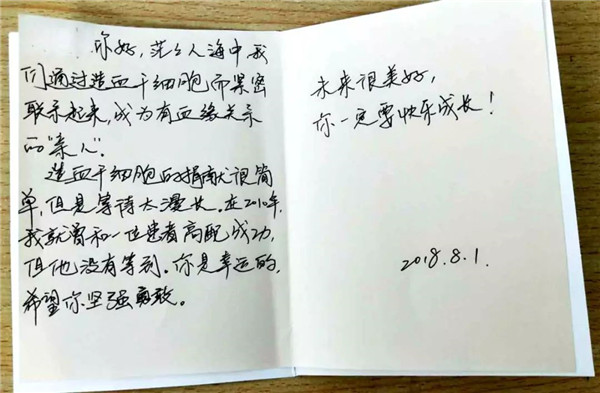 你好,茫々人海中我
们通过造血干细胞而紧密
联系起来,成为有血缘关系
的“亲人”。
造血干细胞的捐献很简
单,但是等待太漫长。在2010年,
我就曾和一位患者高配成功,
但他没有等到。你是幸运的,
希望你坚强勇敢。
未来很美好,
你一定要快乐成长!
2018.8.1.